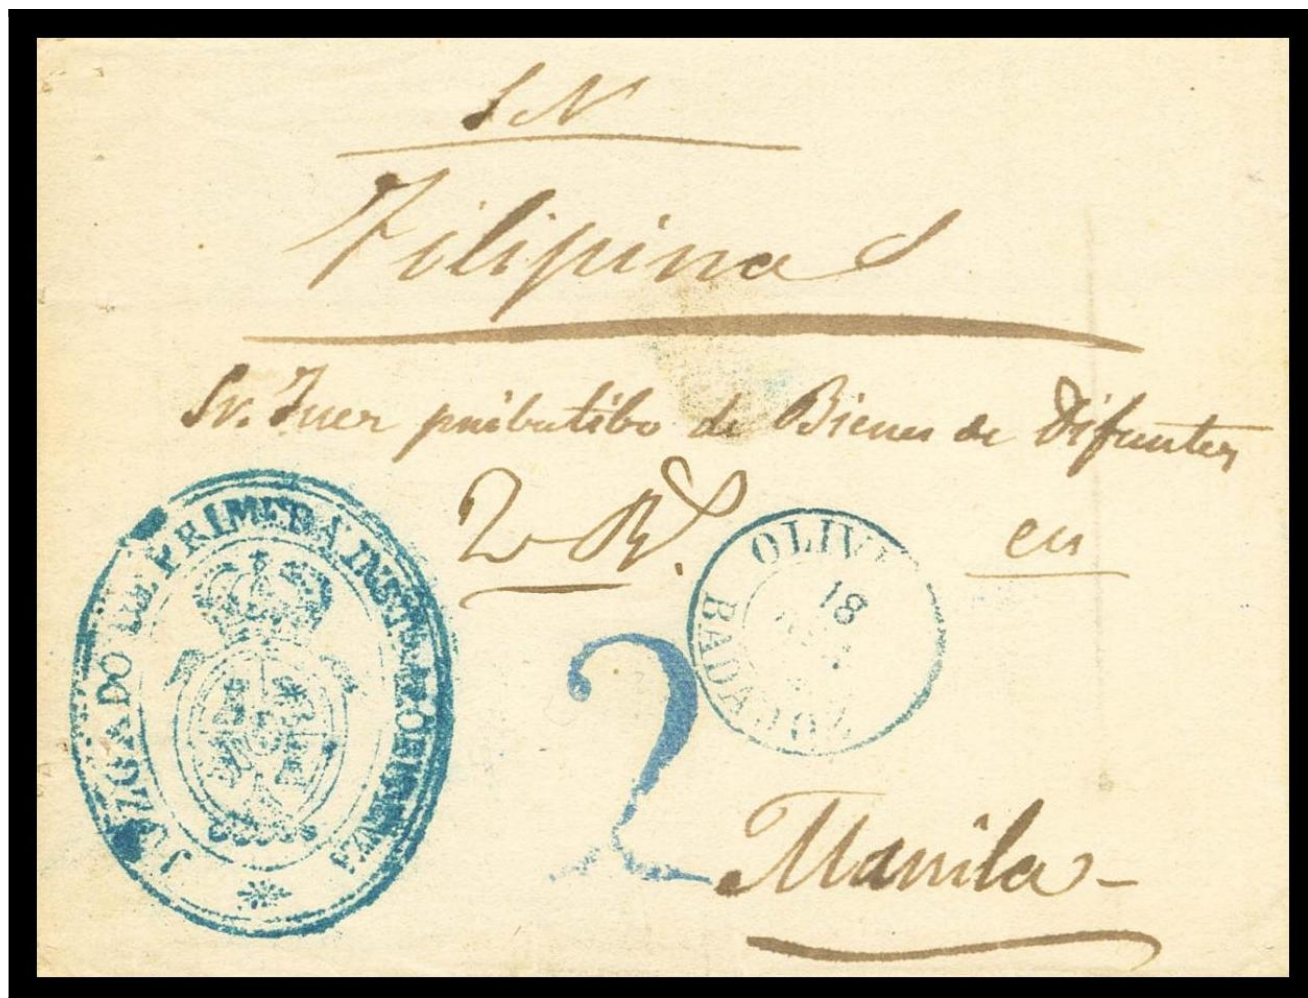 S N
Filipinas
Sr. Juez pribatibo de Bienes de Difuntos
2 Rs.
en
JUZGADO DE PRIMERA INST
OLIV
18
BADAJOZ
2
Manila